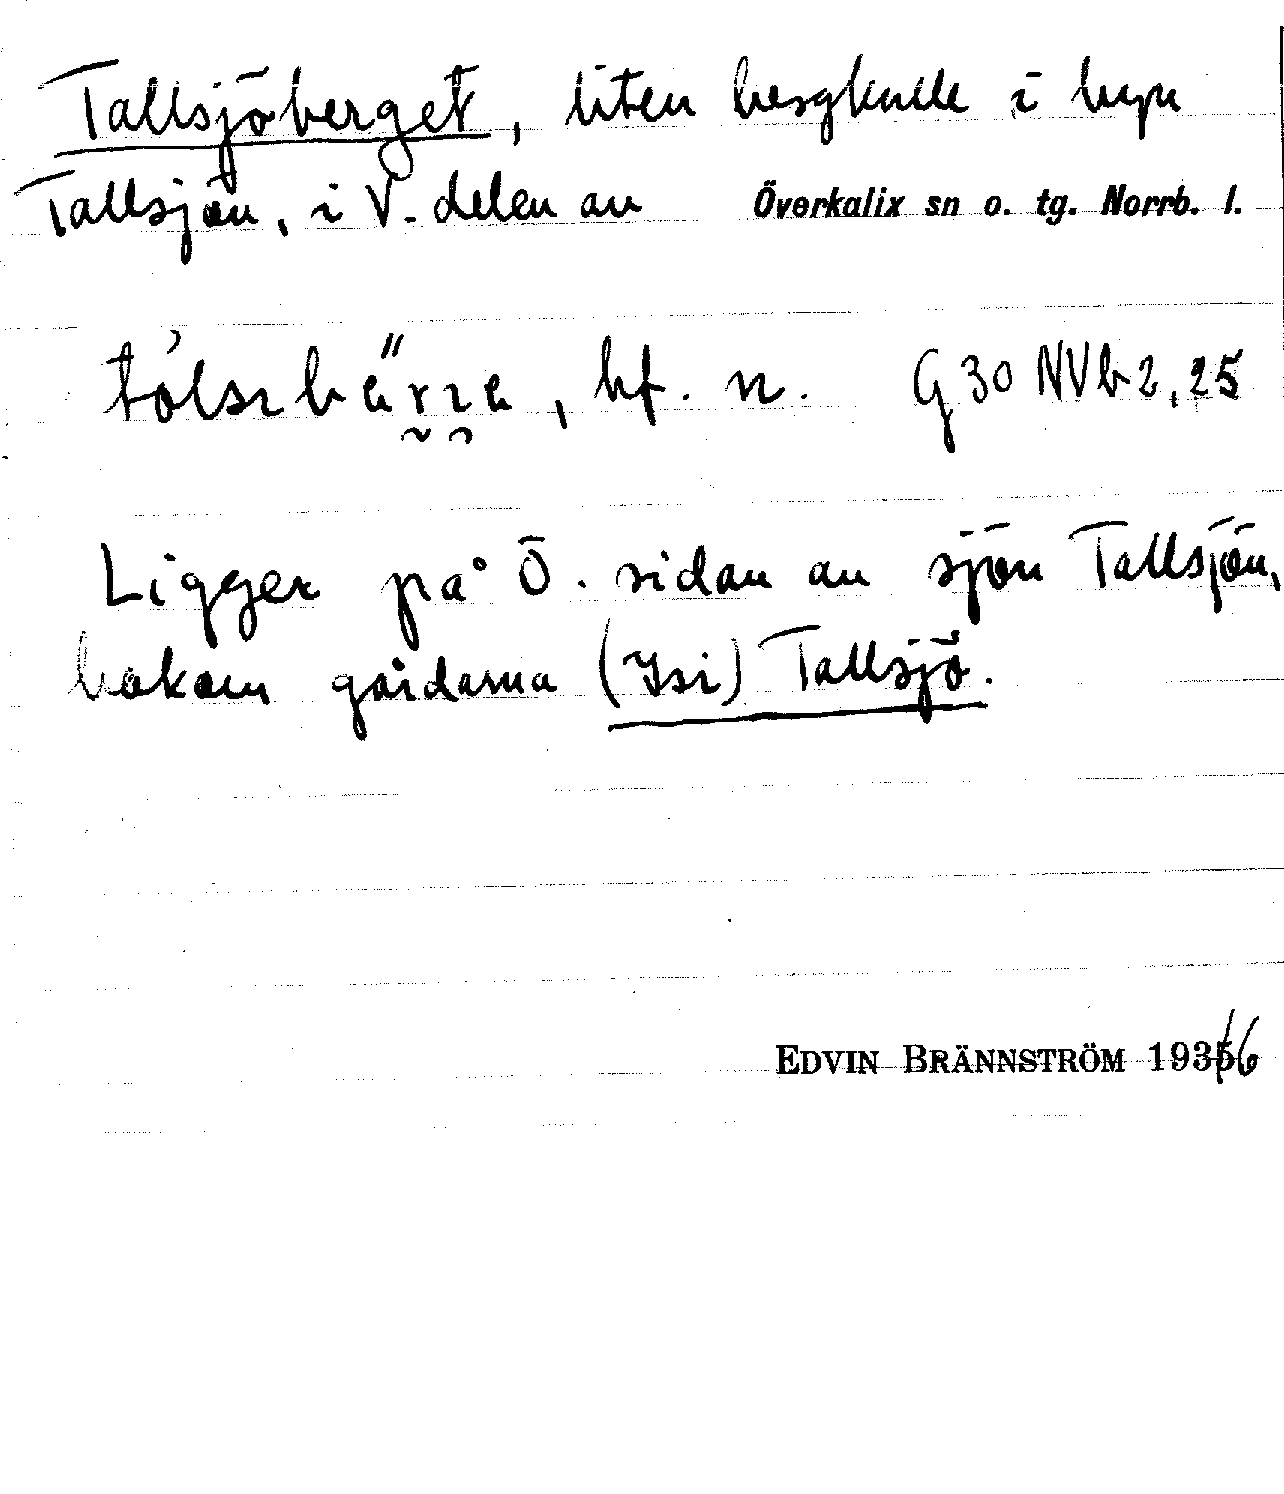 Tallsjöberget, liten bergkulle i byn
Tallsjön, i V. delen av Överkalix sn o. tg. Norrb. l.
bf. n. G 30 NVb 2,25
Ligger på Ö. sidan av sjön Tallsjön,
bakom gårdarna (Isi) Tallsjö.
EDVIN BRÄNNSTRÖM 1936